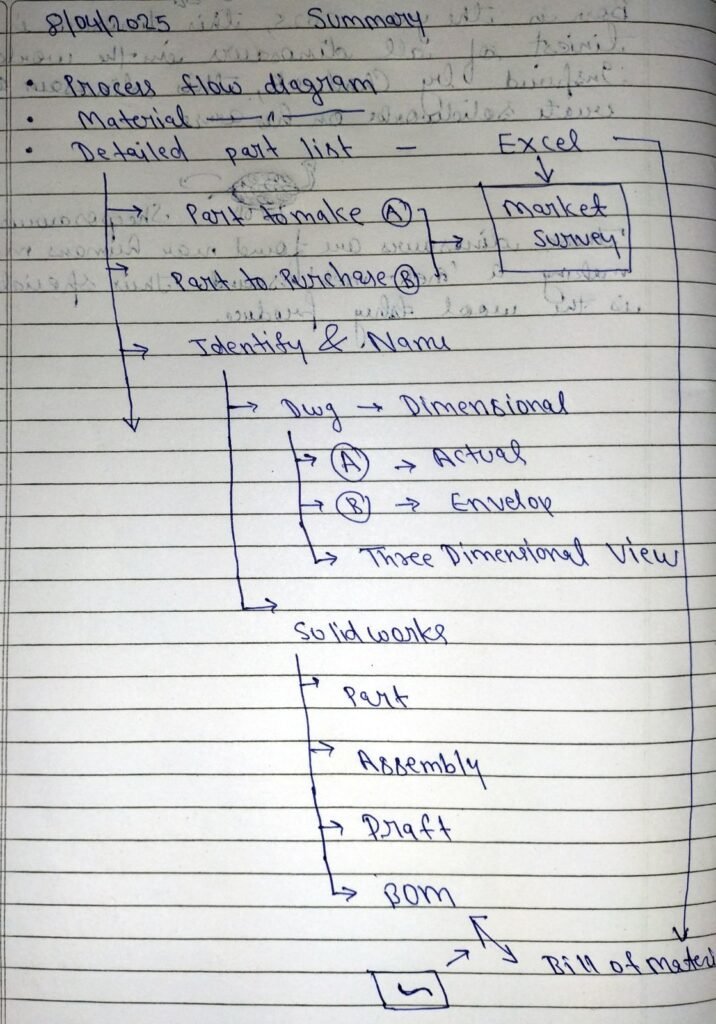 8/04/2025 Summary
• Process flow diagram
• Material —"—
• Detailed part list — Excel
→ Part to make (A)
Market
Survey
→ Part to Purchase (B)
→ Identify & Name
→ Dwg → Dimensional
→ (A) → Actual
→ (B) → Envelop
→ Three Dimensional View
Solidworks
→ Part
→ Assembly
→ Draft
→ BOM
Bill of Materi